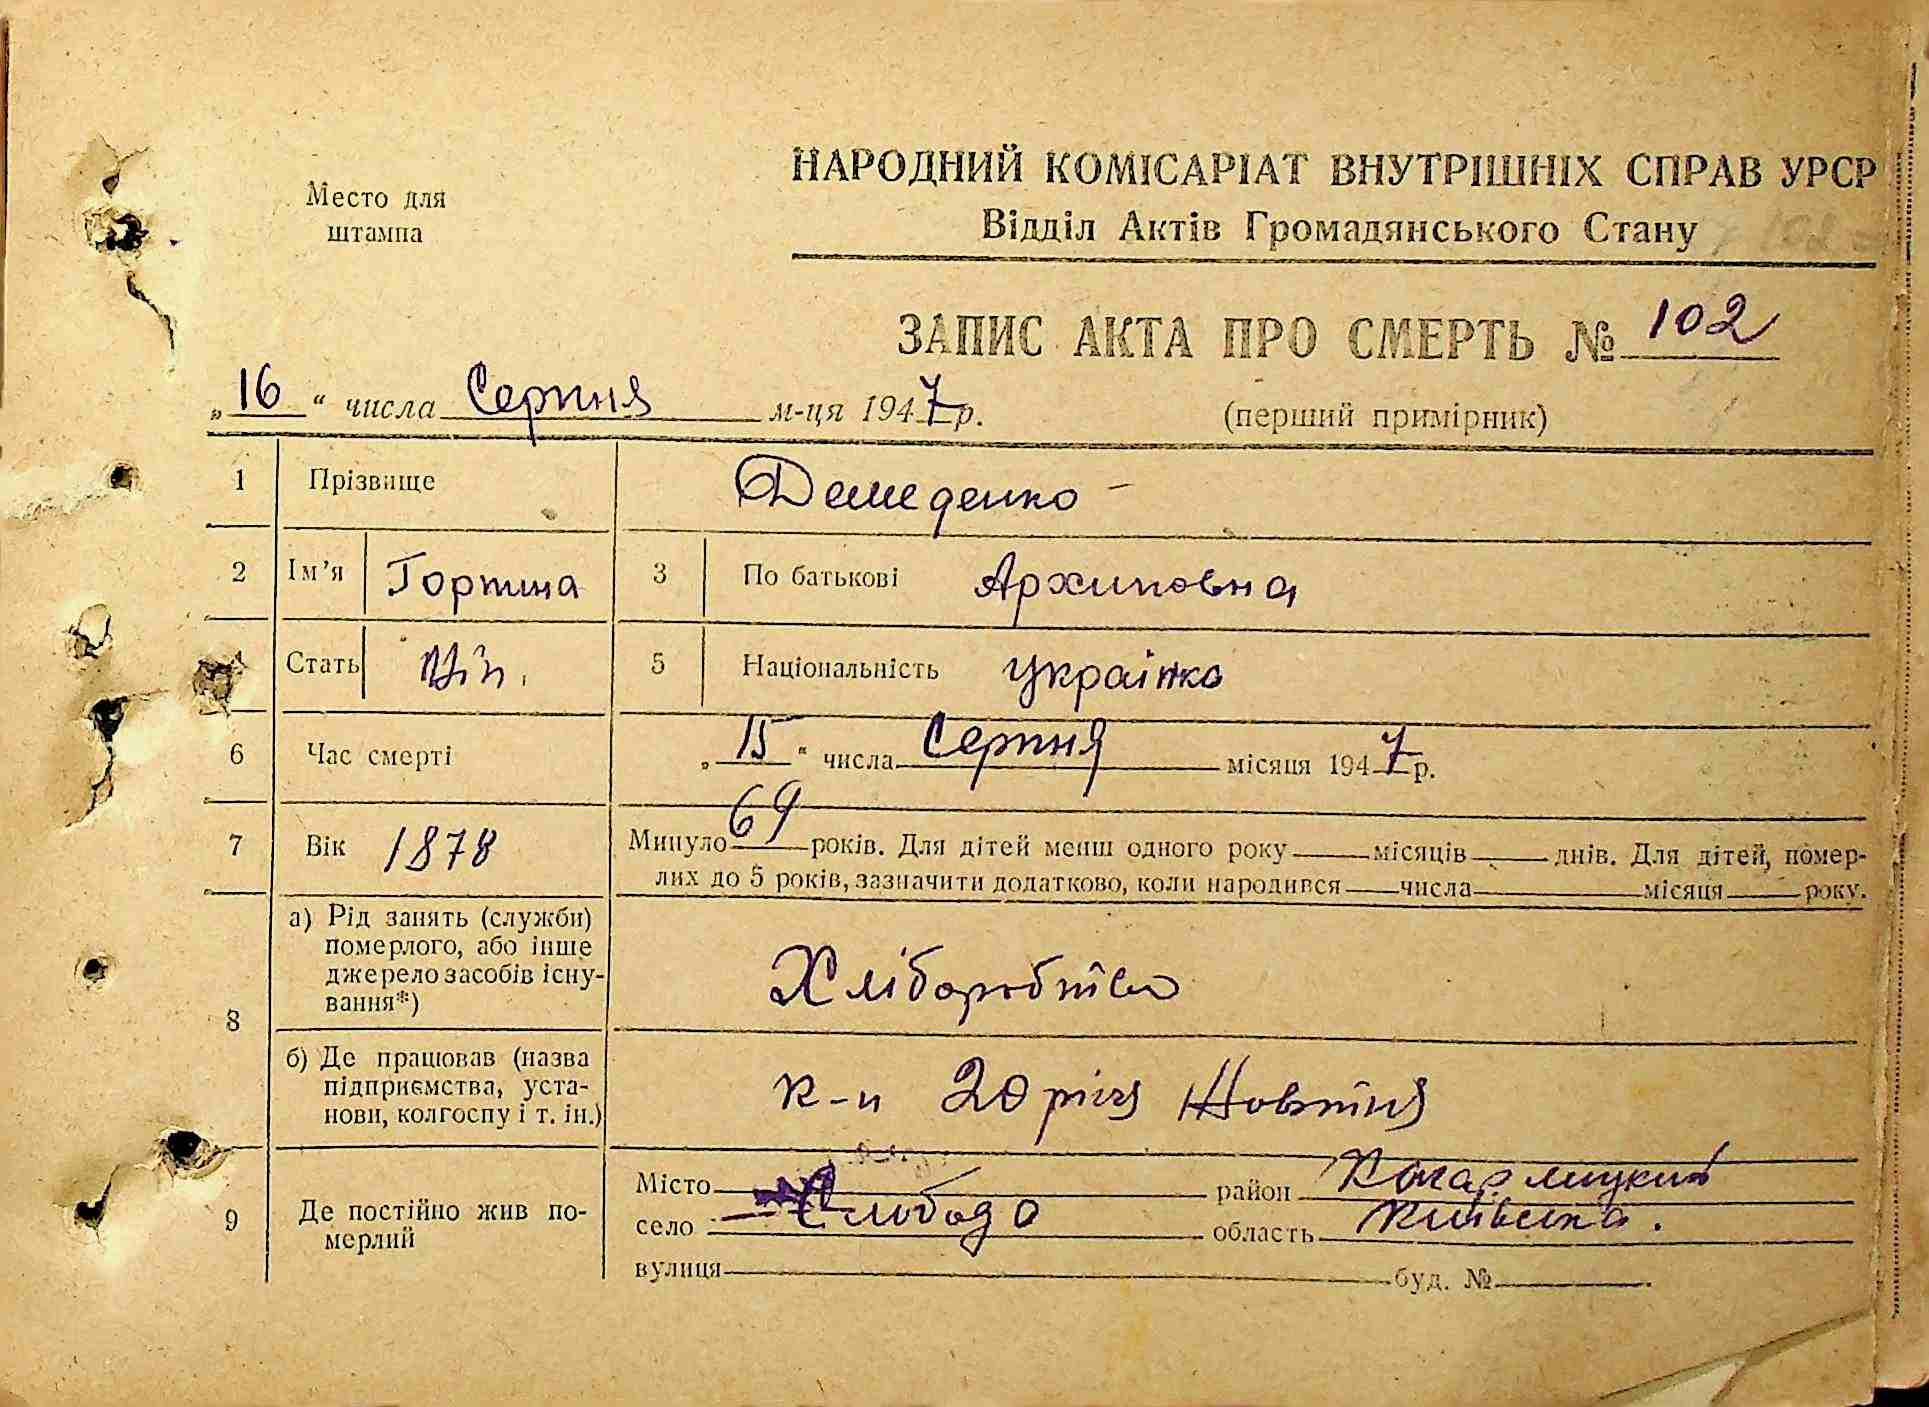 Место для
штампа
НАРОДНИЙ КОМІСАРІАТ ВНУТРІШНІХ СПРАВ УРСР
Відділ Актів Громадянського Стану
ЗАПИС АКТА ПРО СМЕРТЬ № 102
„16“ числа Серпня м-ця 1947 р.
(перший примірник)
1 Прізвище Демеденко
2 Ім’я Горпина 3 По батькові Архиповна
4 Стать 5 Національність українка
6 Час смерті „15“ числа Серпня місяця 1947 р.
7 Вік 1878 Минуло 69 років. Для дітей менш одного року місяців днів. Для дітей, помер-
лих до 5 років, зазначити додатково, коли народився числа місяця року.
8 а) Рід занять (служби)
померлого, або інше
джерело засобів існу-
вання*)
Хліборобство
б) Де працював (назва
підприємства, уста-
нови, колгоспу і т. ін.)
к-п 20 річя Жовтня
9 Де постійно жив по-
мерлий
Місто район Кагарлицкий
село Слобода область Київська.
вулиця буд. №